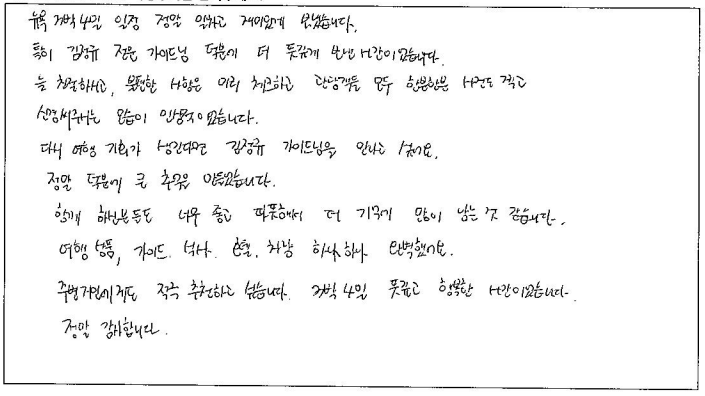 뉴욕 3박4일 일정 정말 알차고 재미있게 보냈습니다.
특히 김정규 전문 가이드님 덕분에 더 뜻깊게 보낸 시간이었습니다.
늘 친절하시고, 불편한 사항은 미리 체크하고 관광객들 모두 한분한분 사진도 찍고
신경써주시는 모습이 인상적이었습니다.
다시 여행 기회가 생긴다면 김정규 가이드님을 만나고 싶어요.
정말 덕분에 큰 추억을 만들었습니다.
함께 하신분들도 너무 좋고 따뜻해서 더 기억에 많이 남는 것 같습니다.
여행 상품, 가이드, 식사, 호텔, 차량 하나하나 완벽했어요.
주변지인에게도 적극 추천하고 싶습니다. 3박4일 뜻깊고 행복한 시간이었습니다.
정말 감사합니다.